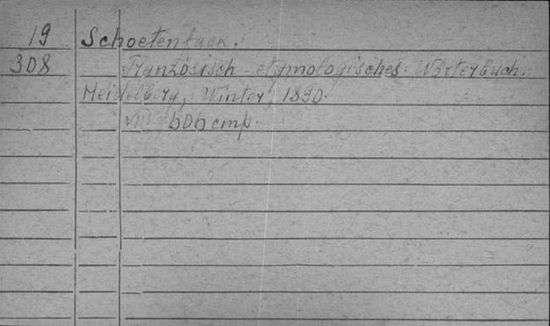 19 Schoetensack.
308 Französisch-etymologisches Wörterbuch.
Heidelberg, Winter, 1890.
VIII